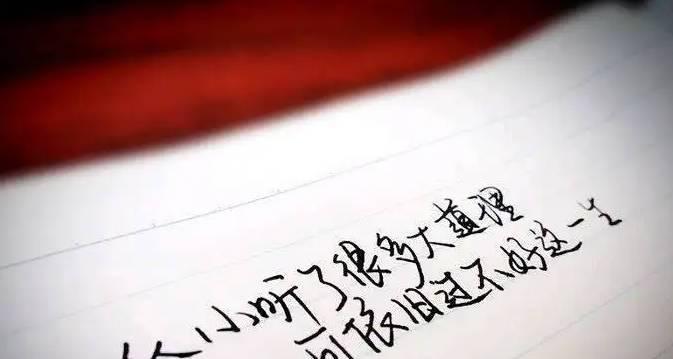 从小听了很多大道理
可依旧过不好这一生